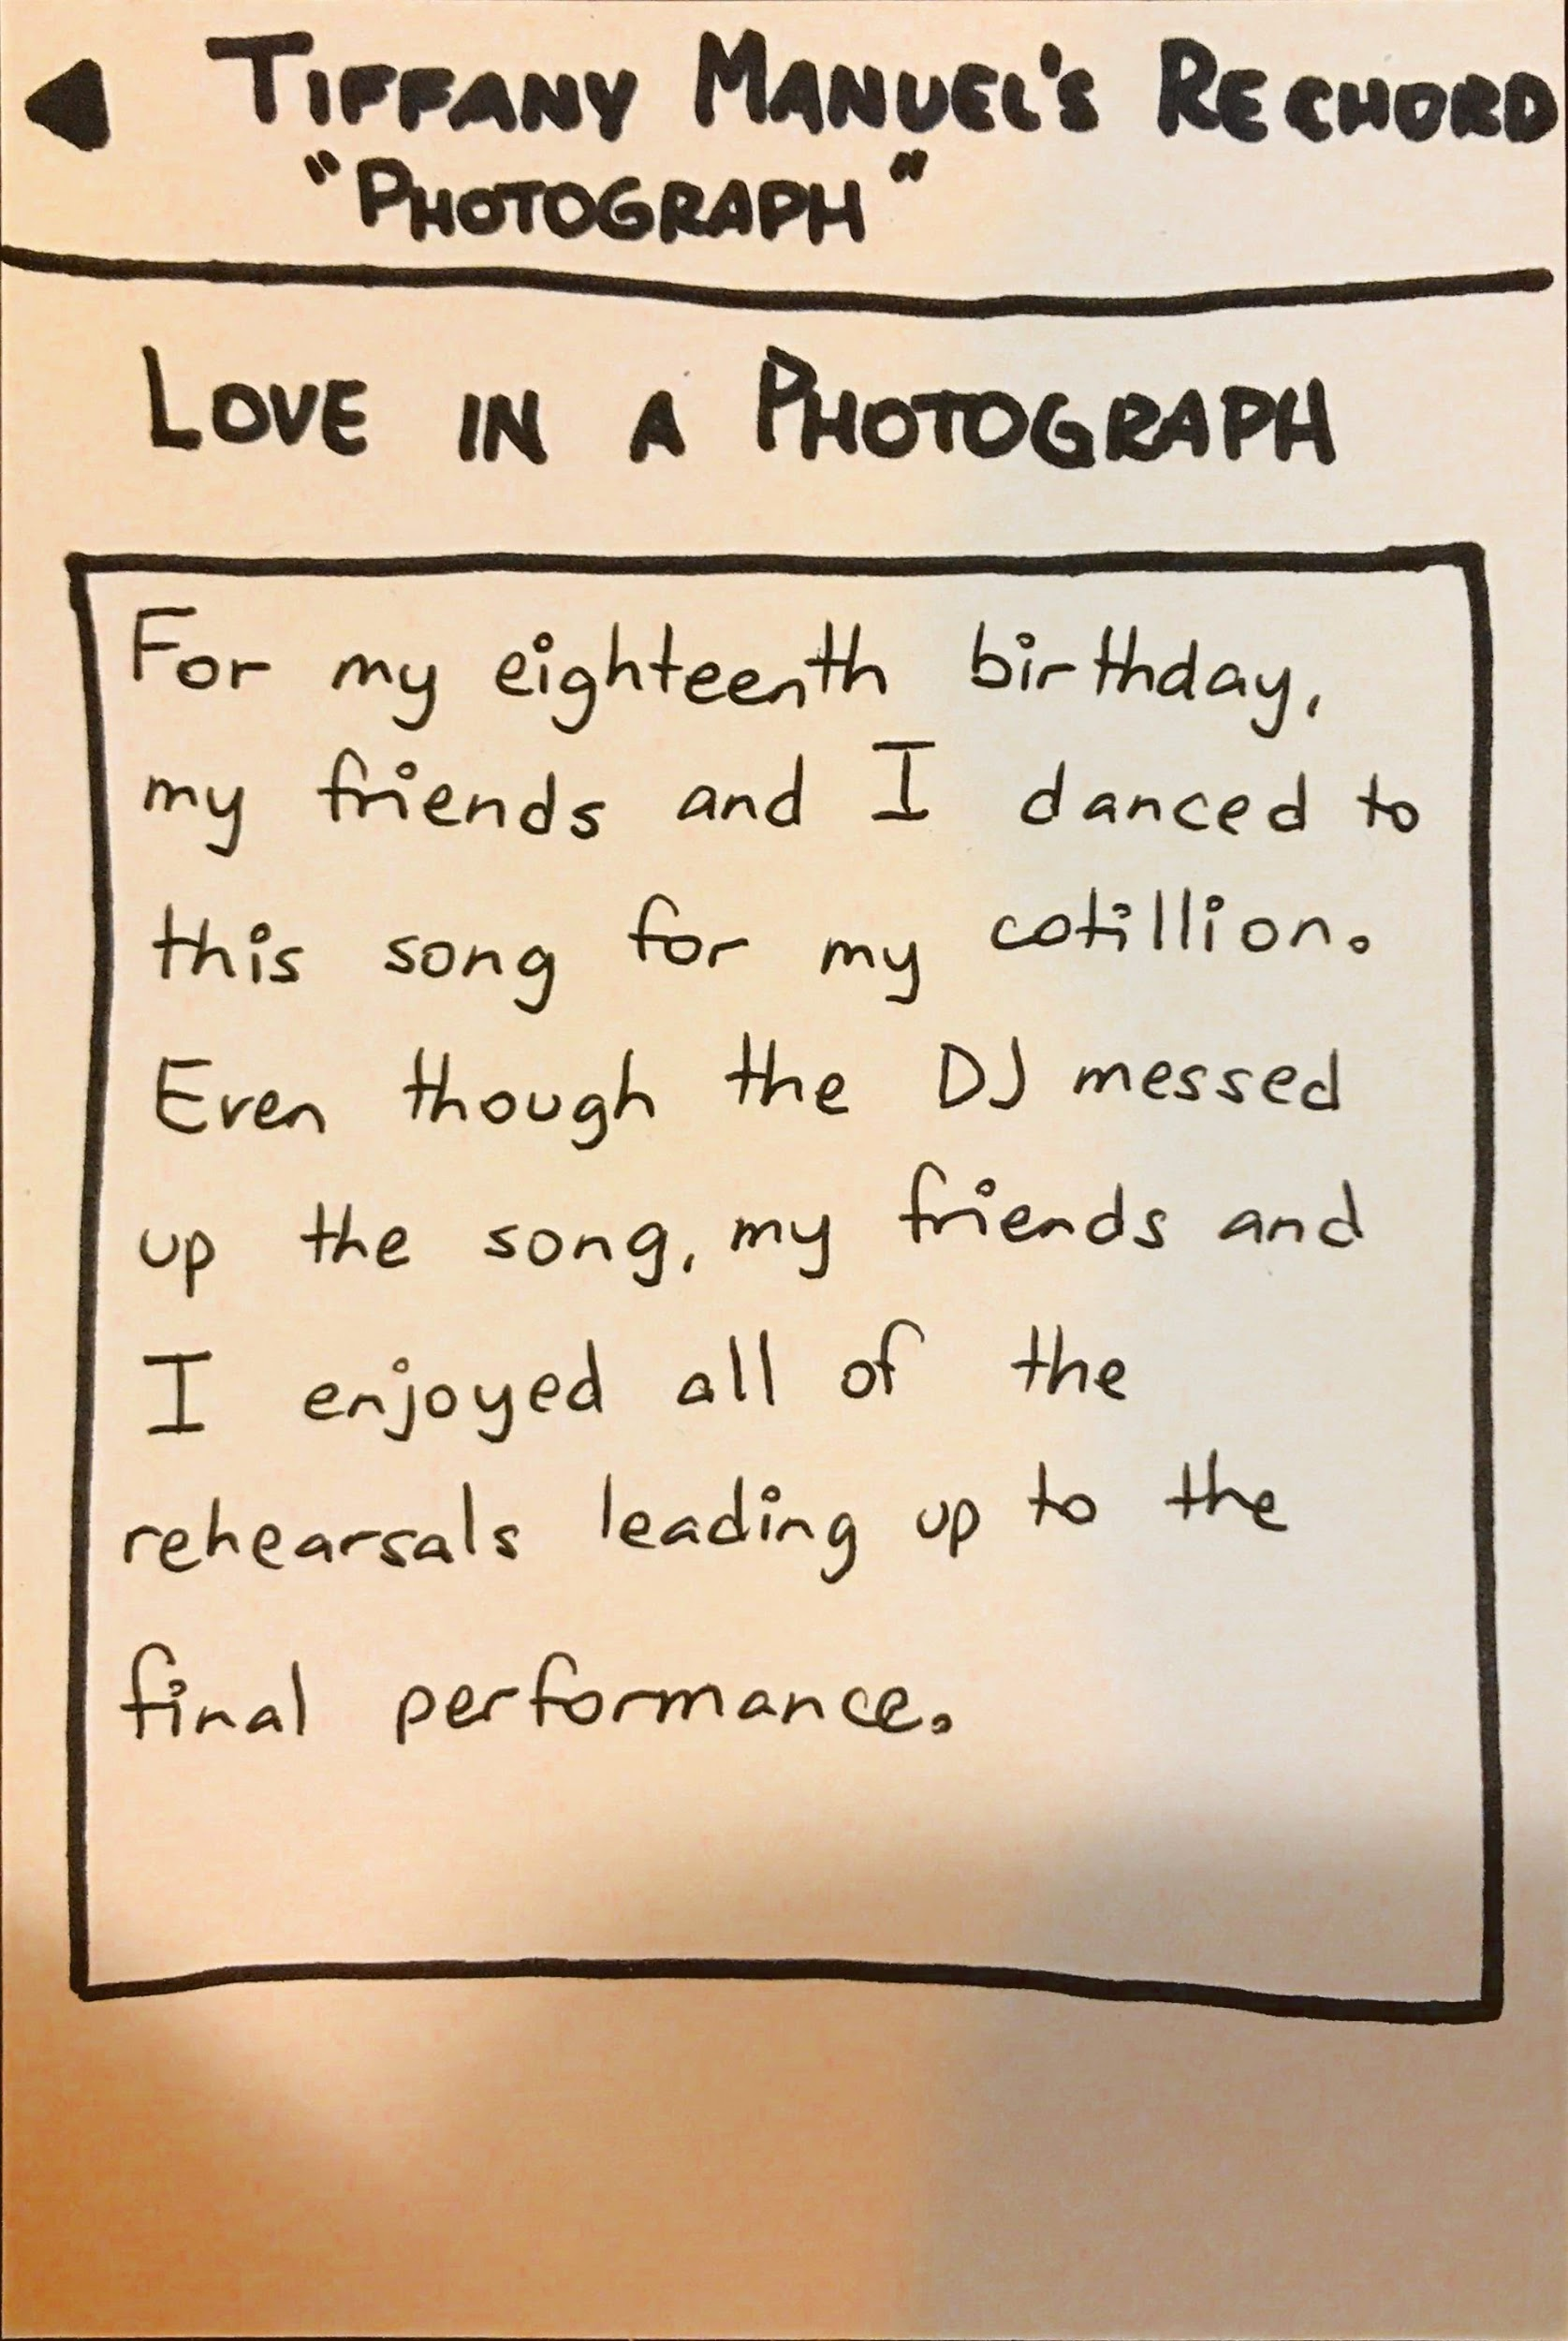 TIFFANY MANUEL'S RECHORD
"PHOTOGRAPH"
LOVE IN A PHOTOGRAPH
For my eighteenth birthday,
my friends and I danced to
this song for my cotillion.
Even though the DJ messed
up the song, my friends and
I enjoyed all of the
rehearsals leading up to the
final performance.